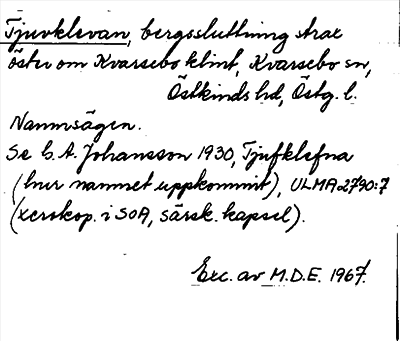 Tjuvklevan, bergssluttning strax
öster om Kvarsebo klint, Kvarsebo sn,
Östkinds hd, Östg. l.
Namnsägen.
Se C. A. Johansson 1930, Tjufklefna
(hur namnet uppkommit), ULMA 2790:7
(xerokop. i SOA, särsk. kapsel).
Exc. av M.D.E. 1967.